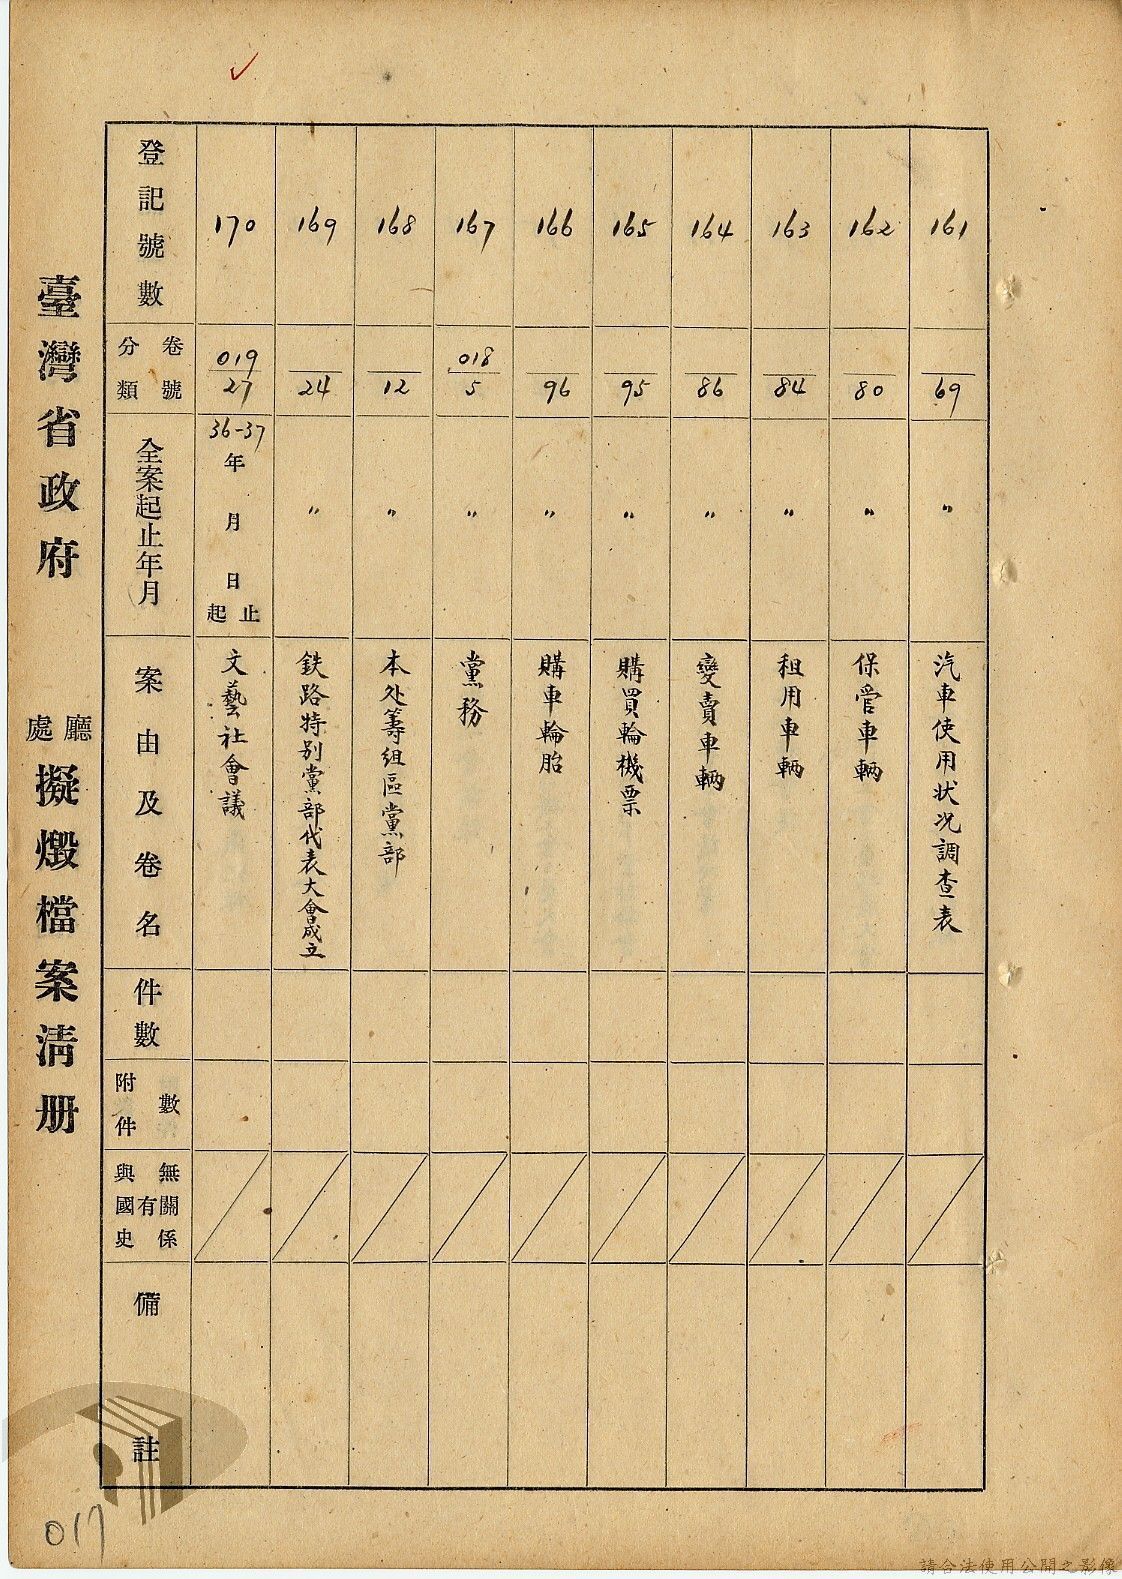 臺灣省政府 廳處 擬燬檔案清册
登記號數 分類卷號 全案起止年月 案由及卷名 件數 附件數 與國史有無關係 備註
170 019/27 36-37年 月 日起止 文藝社會議
169 24 〃 鉄路特別黨部代表大會成立
168 12 〃 本处籌組區黨部
167 018/5 〃 黨務
166 96 〃 購車輪胎
165 95 〃 購買輪機票
164 86 〃 變賣車輛
163 84 〃 租用車輛
162 80 〃 保管車輛
161 69 〃 汽車使用状况調查表
017
請合法使用公開之影像